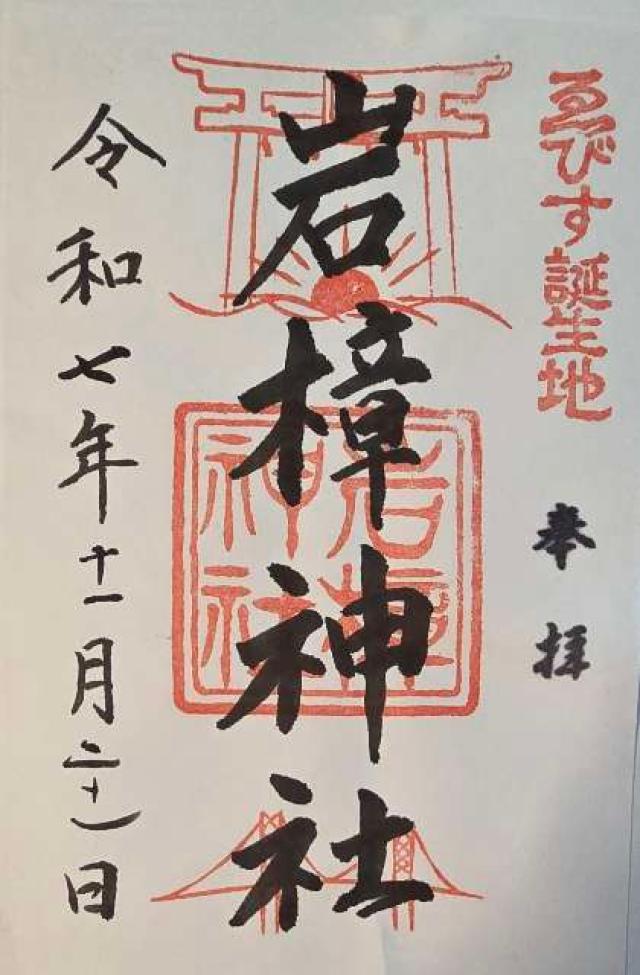 ゑびす誕生地
奉拝
岩樟神社
岩樟神社
令和七年十一月二十一日